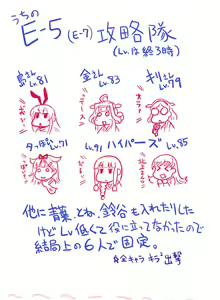 うちの
E-5 (E-7) 攻略隊
(Lv.は終了時)
島さん Lv.81
金さん Lv.83
キリさん Lv.79
夕っぽい Lv.71
Lv.91 ハイパーズ Lv.85
他に青葉、とね、鈴谷も入れたりした
けどLv低くて役に立ってなかったので
結局上の6人で固定。
全キャラキラ出撃